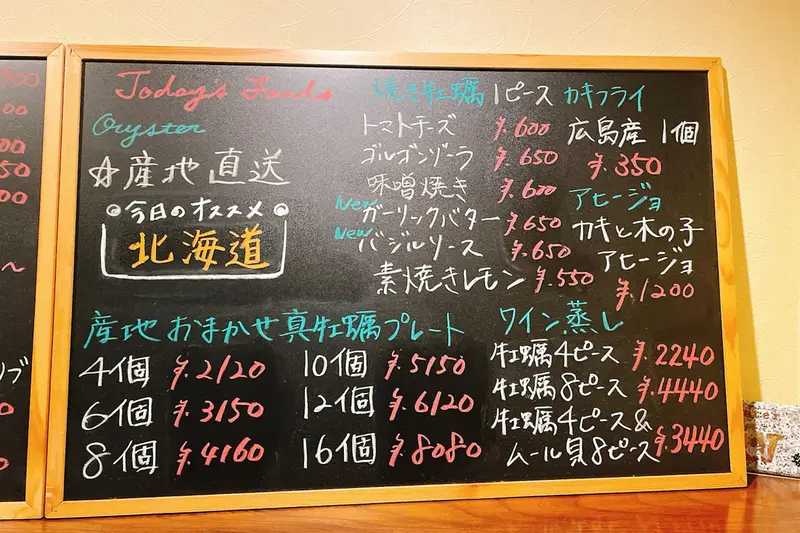 Today's Foods
Oryster
☆産地直送
◎今日のオススメ◎
北海道
焼き牡蠣 1ピース
トマトチーズ ¥.600
ゴルゴンゾーラ ¥.650
味噌焼き ¥.600
New ガーリックバター ¥.650
New バジルソース ¥.650
素焼きレモン ¥.550
カキフライ
広島産 1個
¥.350
アヒージョ
カキと木の子
アヒージョ
¥.1200
産地おまかせ真牡蠣プレート
4個 ¥.2120
6個 ¥.3150
8個 ¥.4160
10個 ¥.5150
12個 ¥.6120
16個 ¥.8080
ワイン蒸し
牡蠣4ピース ¥.2240
牡蠣8ピース ¥.4440
牡蠣4ピース&
ムール貝8ピース ¥.3440